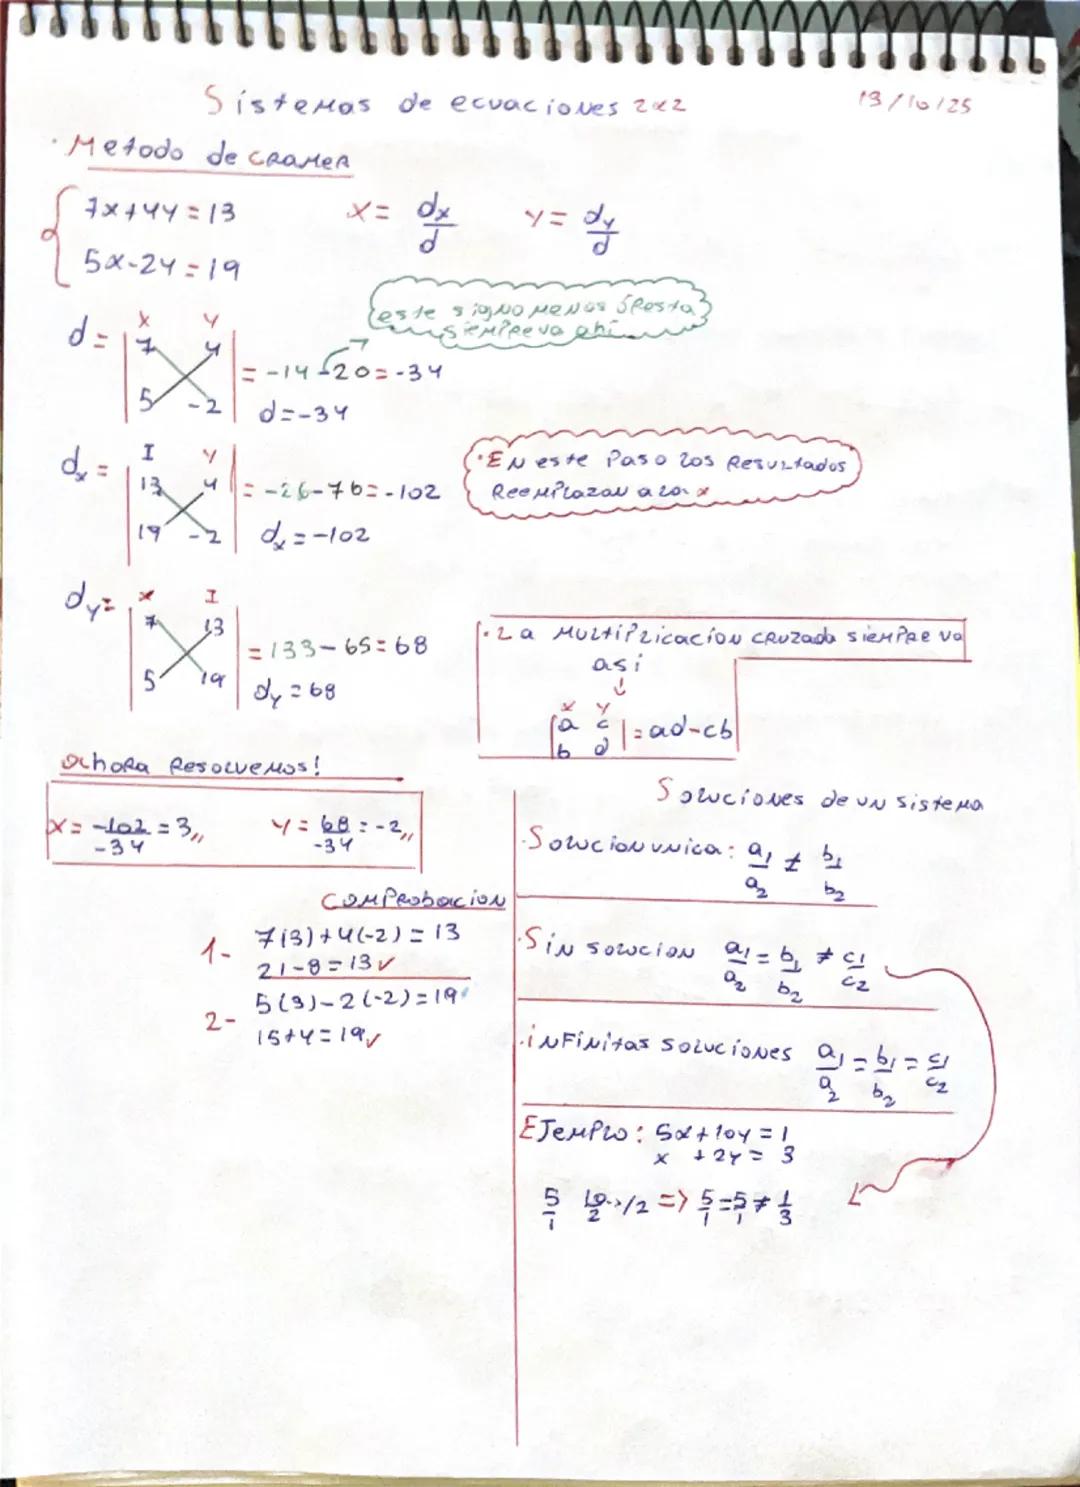 Sistemas de ecuaciones 2x2
13/10/25
· Metodo de CRAMER
7x+4y=13
5x-2y=19
x= dx/d
y= dy/d
este signo menos ó resta
siempre va ahí
d= | x y
7 4
5 -2 | = -14-20=-34
d=-34
dx = | I y
13 4
19 -2 | = -26-76=-102
dx=-102
· En este paso los resultados
Reemplazan a la x
dy= | x I
7 13
5 19 | = 133-65=68
dy=68
· La multiplicacion cruzada siempre va
asi
↓
x y
|a c
b d| = ad-cb
ahora resolvemos!
x= -102/-34 = 3,,
y= 68/-34 = -2,,
Comprobacion
1- 7(3)+4(-2)=13
21-8=13✓
2- 5(3)-2(-2)=19
15+4=19✓
Soluciones de un sistema
· Solucion unica: a1/a2 ≠ b1/b2
· Sin solucion a1/a2 = b1/b2 ≠ c1/c2
· infinitas soluciones a1/a2 = b1/b2 = c1/c2
Ejemplo: 5x+10y=1
x +2y= 3
5/1 10/2 ../2 => 5/1=5/1≠1/3